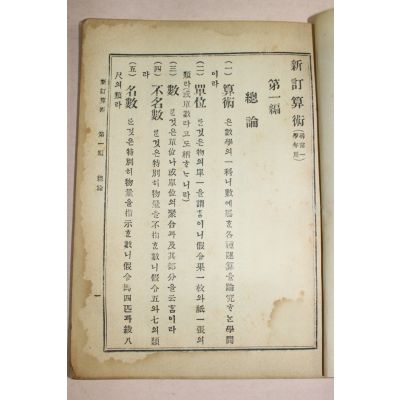 新訂算術 (尋常一學年用)
第一編
總論
(一) 算術 은數學의一科니數에屬한各種運算을論究하는學問
이라
(二) 單位 란것은物의單一을謂홈이니假令果一枚와紙一張의
類라(或單數라고도稱하나니라)
(三) 數 란것은單位나或單位의聚合과及其部分을云홈이라
(四) 不名數 란것은特別히物量을不指한數니假令五와七의類
라
(五) 名數 란것은特別히物量을指示한數니假令馬四匹과綾八
尺의類라
新訂算術 第一編 總論 一